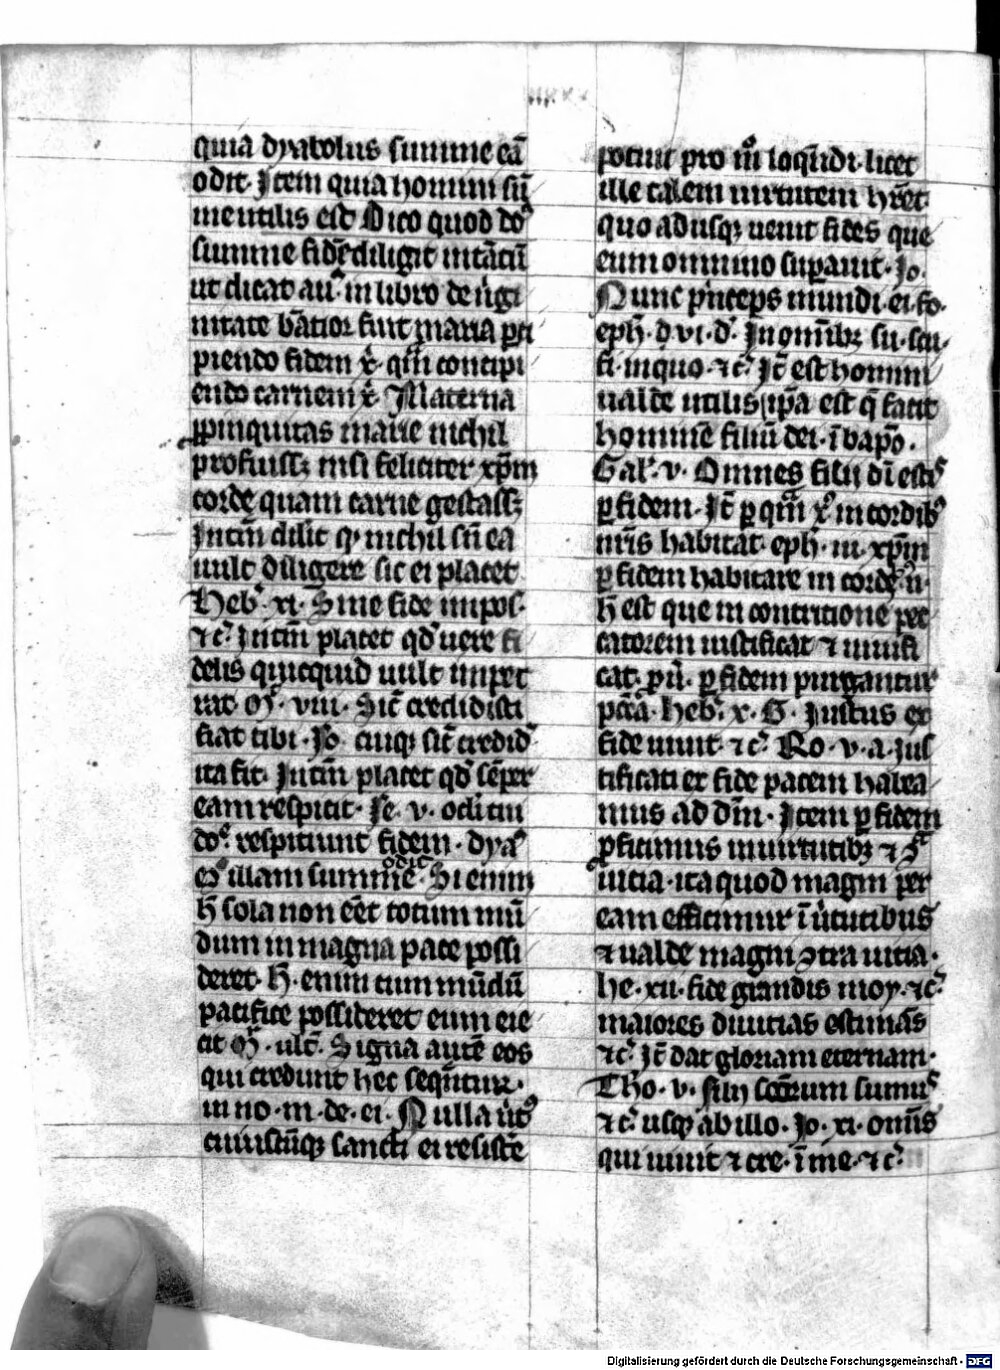 quia dyabolus summe eā
odit· Item quia homini sū
me utilis est Dico quod do᷒
summe fidē diligit intātū
ut dicat au᷒ in libro de uͥgi
nitate bāatior fuit maria p̄ci
piendo fidem x̄ˈ qͣm concipi
endo carnem x̄ˈ Materna
ꝓpinquitas marie nichil
profuissꝫ nisi feliciter xp̄m
corde quam carne gestassꝫ
Intm̄ dilit ꝙ nichil sn̄ ea
uult diligere sic ei placet
Heb᷒· xi· Sine fide impos·
⁊c᷒ Intm̄ placet qd᷒ uere fi
delis quicquid uult impet
rat Mͭ· viii· Sic̄ credidisti
fiat tibi· Jo· cuiqꝫ sic̄ credid᷒
ita fit· Intm̄ placet qd᷒ sēper
eam respicit· Je· v· oculi tui
do᷒ respiciunt fidem· dya᷒
illam summe odit· Si enim
h̄ sola non eēt totum mū
dum in magna pace possi
deret· H̄· enim cum mūdū
pacifice possideret eum eie
cit Mͬ· ult᷒· Signa autē eos
qui credunt hec seqūtur·
in no· m· de· ei· Nulla uͥt᷒
cuiuscūqꝫ sancti ei resistē
potuit pro mͦ loqūdi· licet
ille talem uirtutem hr̄et
quo adusqꝫ uenit fides que
eum omnino suꝑauit· Jo·
Nunc pͥnceps mundi· ei· fo·
eph᷒· d vi· d᷒· In om̄ibꝫ su· scu·
fi· in quo· ⁊c᷒ Jt̄ est homini
ualde utilis ip̄a est q̄ facit
hominē filiū dei· ī bap̄o·
Gal᷒· v· Omnes filii dī estis᷒
ꝑ fidem· Jt̄ ꝑ qͣm x᷒ in cordib᷒
nr̄is habitat· eph᷒· iii· xp̄m
ꝑ fidem habitare in cord᷒ u·
h̄ est que in contritione pec
catorem iustificat ⁊ uiuifi
cat· pͥ u· ꝑ fidem purgantur
pc̄cā· Heb᷒· x· G· Iustus ex
fide uiuit ⁊c᷒ Ro· v· a· Jus
tificati ex fide pacem habea
mus ad dm̄· Item ꝑ fidem
ꝓficimus in uirtutibꝫ ⁊ 9ͣ
uicia· ita quod magni per
eam efficimur ī uͥtutibus
⁊ ualde magni ↄtra uicia·
he· xii· fide grandis moy· ⁊c᷒
maiores diuitias estimās
⁊c᷒ Jt̄ dat gloriam eternam·
Tho· v· filii scōrum sumus᷒
⁊c᷒ usqꝫ ab illo· Jo· xi· omīs
qui uiuit ⁊ cre· ī me· ⁊c᷒
Digitalisierung gefördert durch die Deutsche Forschungsgemeinschaft - DFG